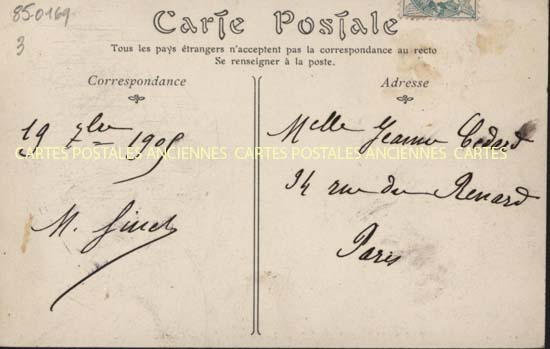 85-0169
3
Carte Postale
Tous les pays étrangers n'acceptent pas la correspondance au recto
Se renseigner à la poste.
Correspondance
19 7bre 1905
M.
Adresse
Melle Jeanne
34 rue du Renard
Paris
CARTES POSTALES ANCIENNES CARTES POSTALES ANCIENNES CARTES